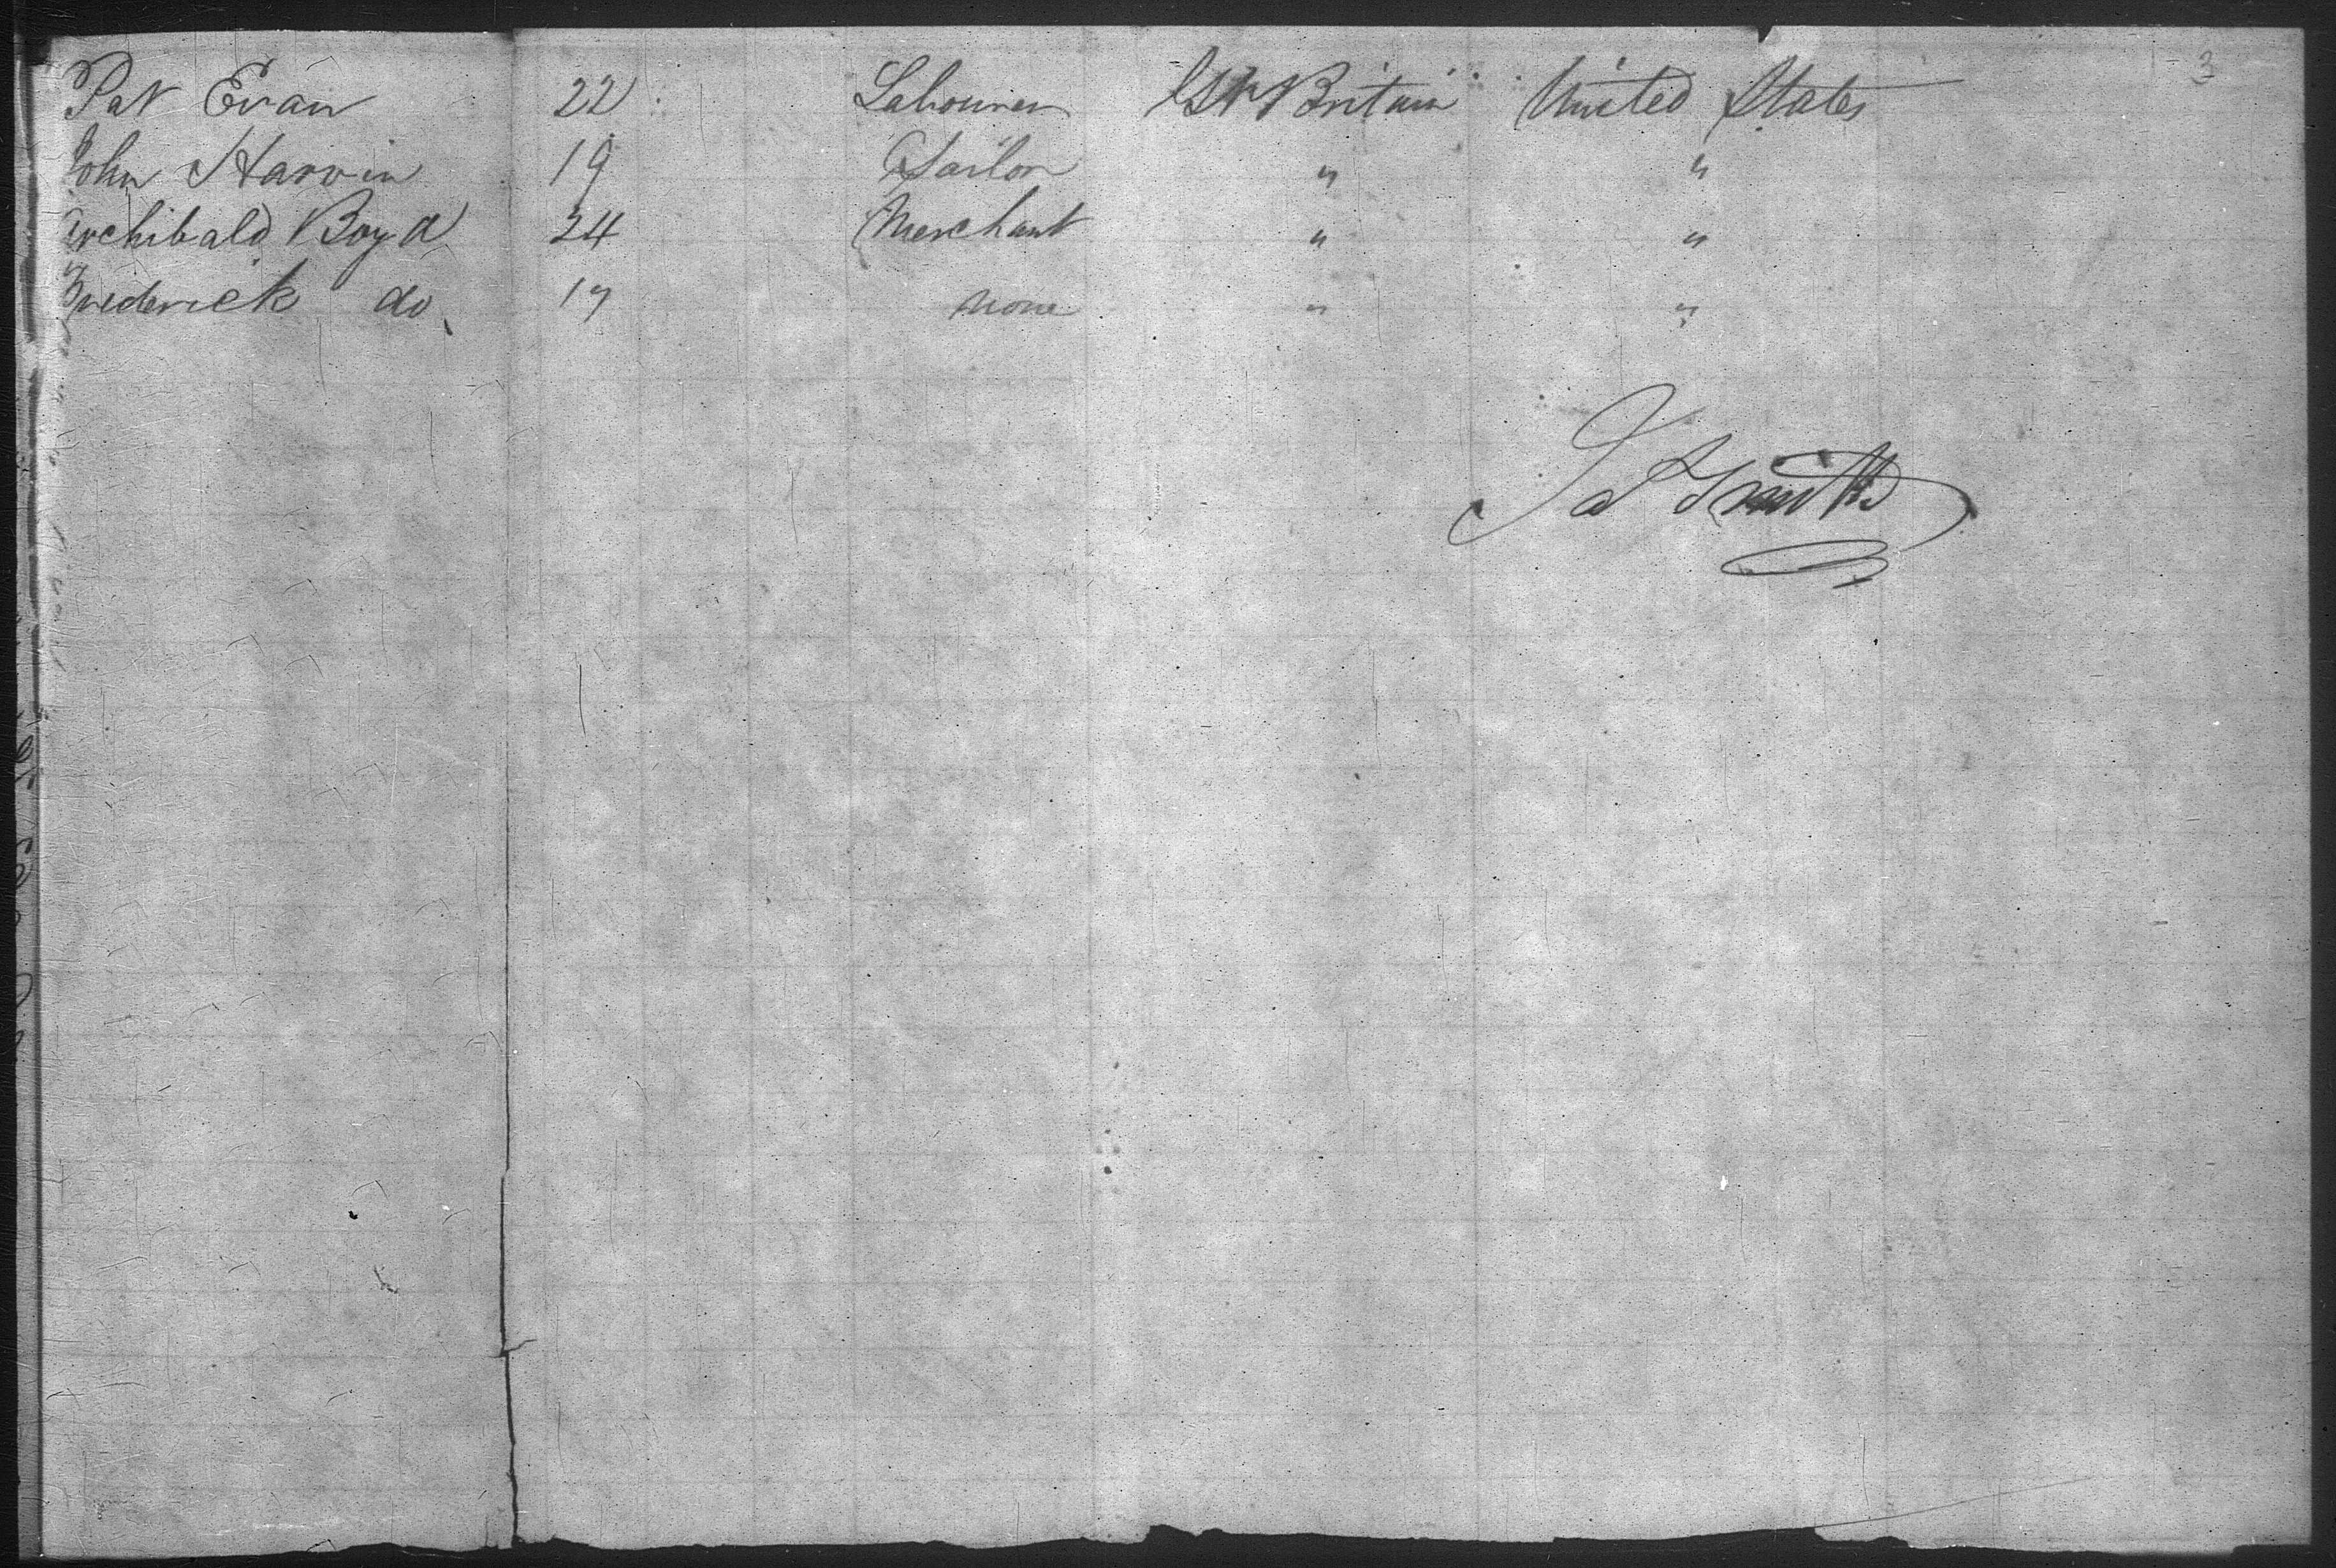 3
Pat Evan 22 Labourer Gt Britain United States
John Harvin 19 Sailor " "
Archibald Boyd 24 Merchant " "
Frederick do 17 none " "
Jas Smith